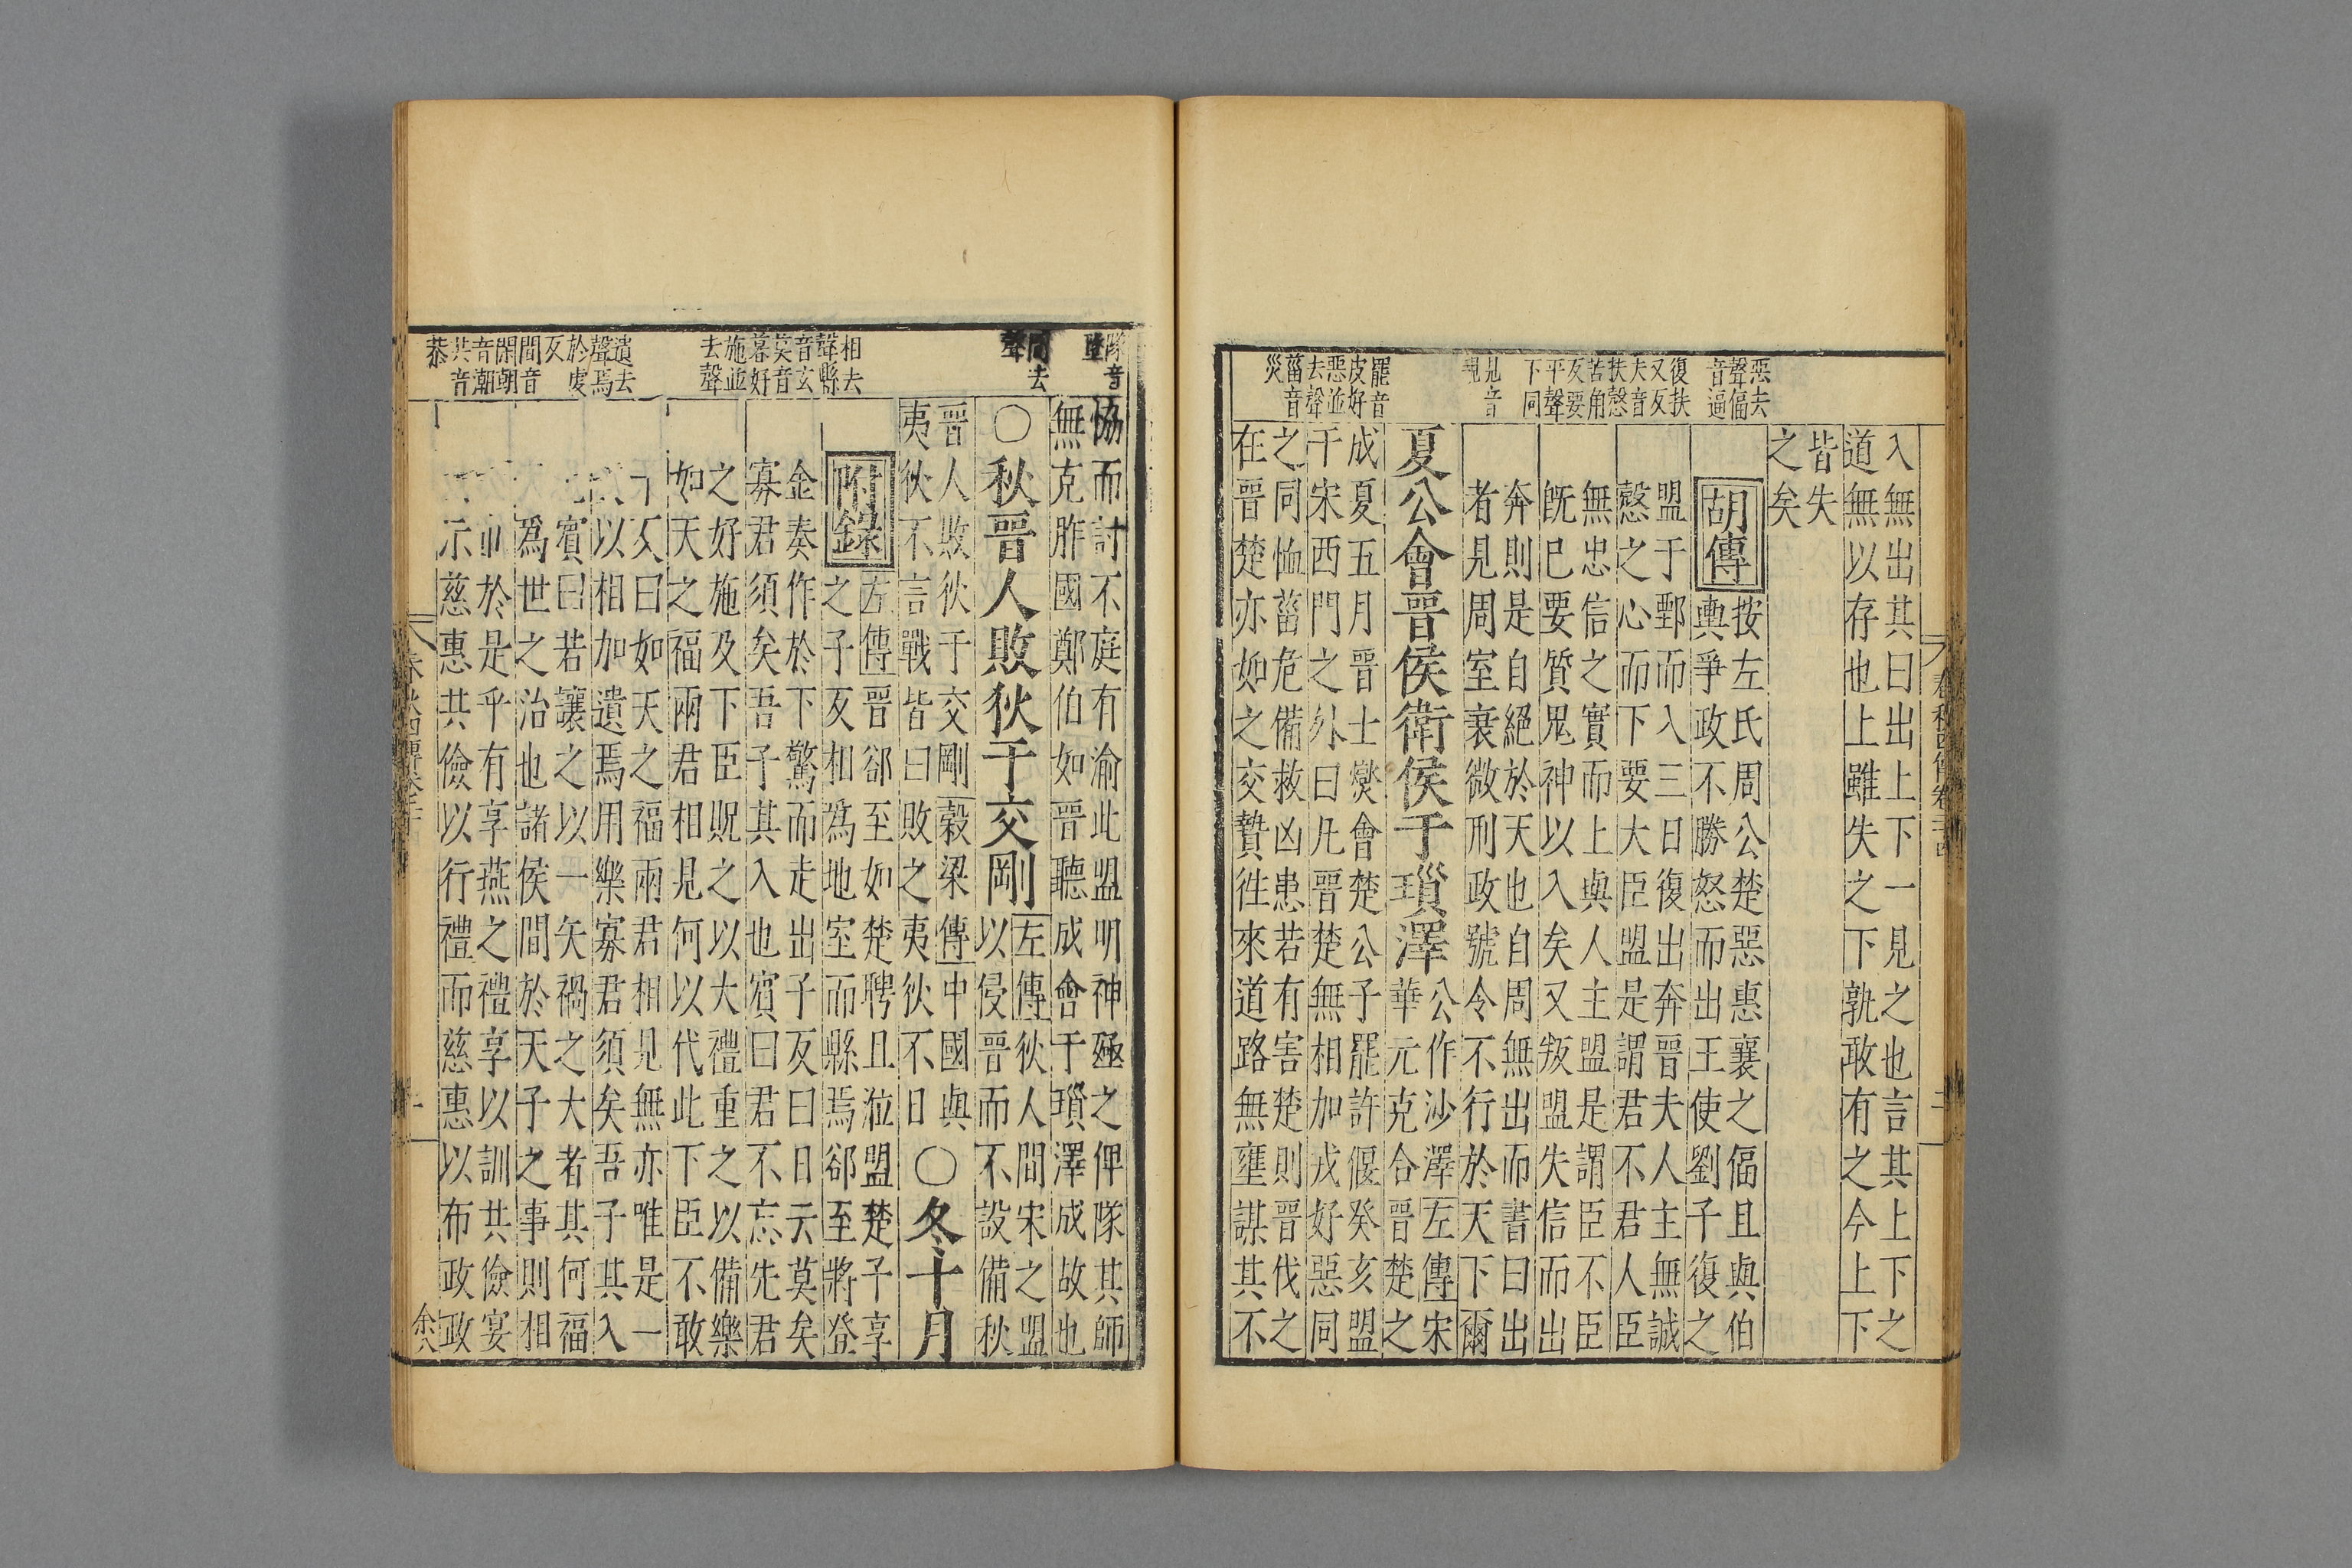 惡去
聲偪
音逼
復扶
又反
夫音
扶愨
苦角
反要
平聲
下同
見音
現
罷音
皮好
惡並
去聲
菑音
災
入無出其曰出上下一見之也言其上下之
道無以存也上雖失之下孰敢有之今上下
皆失
之矣
胡傳
按左氏周公楚惡惠襄之偪且與伯
輿爭政不勝怒而出王使劉子復之
盟于鄄而入三日復出奔晉夫人主無誠
愨之心而下要大臣盟是謂君不君人臣
無忠信之實而上與人主盟是謂臣不臣
旣已要質鬼神以入矣又叛盟失信而出
奔則是自絕於天也自周無出而書曰出
者見周室衰微刑政號令不行於天下爾
夏公會晉侯衛侯于瑣澤
公作沙澤左傳宋
華元克合晉楚之
成夏五月晉士燮會楚公子罷許偃癸亥盟
于宋西門之外曰凡晉楚無相加戎好惡同
之同恤菑危備救凶患若有害楚則晉伐之
在晉楚亦如之交贄徃來道路無壅謀其不
春秋四傳卷二十四
隊音
墜
間去
聲
相去
聲縣
音玄
莫音
暮好
施並
去聲
遺去
聲焉
於虔
反
間音
閑朝
音潮
共音
恭
協而討不庭有渝此盟明神殛之俾隊其師
無克胙國鄭伯如晉聽成會于瑣澤成故也
○秋晉人敗狄于交剛
左傳狄人間宋之盟
以侵晉而不設備秋
晉人敗狄于交剛穀梁傳中國與
夷狄不言戰皆曰敗之夷狄不日
○冬十月
附錄
左傳晉郤至如楚聘且涖盟楚子享
之子反相為地室而縣焉郤至將登
金奏作於下驚而走出子反曰日云莫矣
寡君須矣吾子其入也賓曰君不忘先君
之好施及下臣貺之以大禮重之以備樂
如天之福兩君相見何以代此下臣不敢
反曰如天之福兩君相見無亦唯是一
以相加遺焉用樂寡君須矣吾子其入
賓曰若讓之以一矢禍之大者其何福
為世之治也諸侯間於天子之事則相
於是乎有享燕之禮享以訓共儉宴
示慈惠共儉以行禮而慈惠以布政政
余八